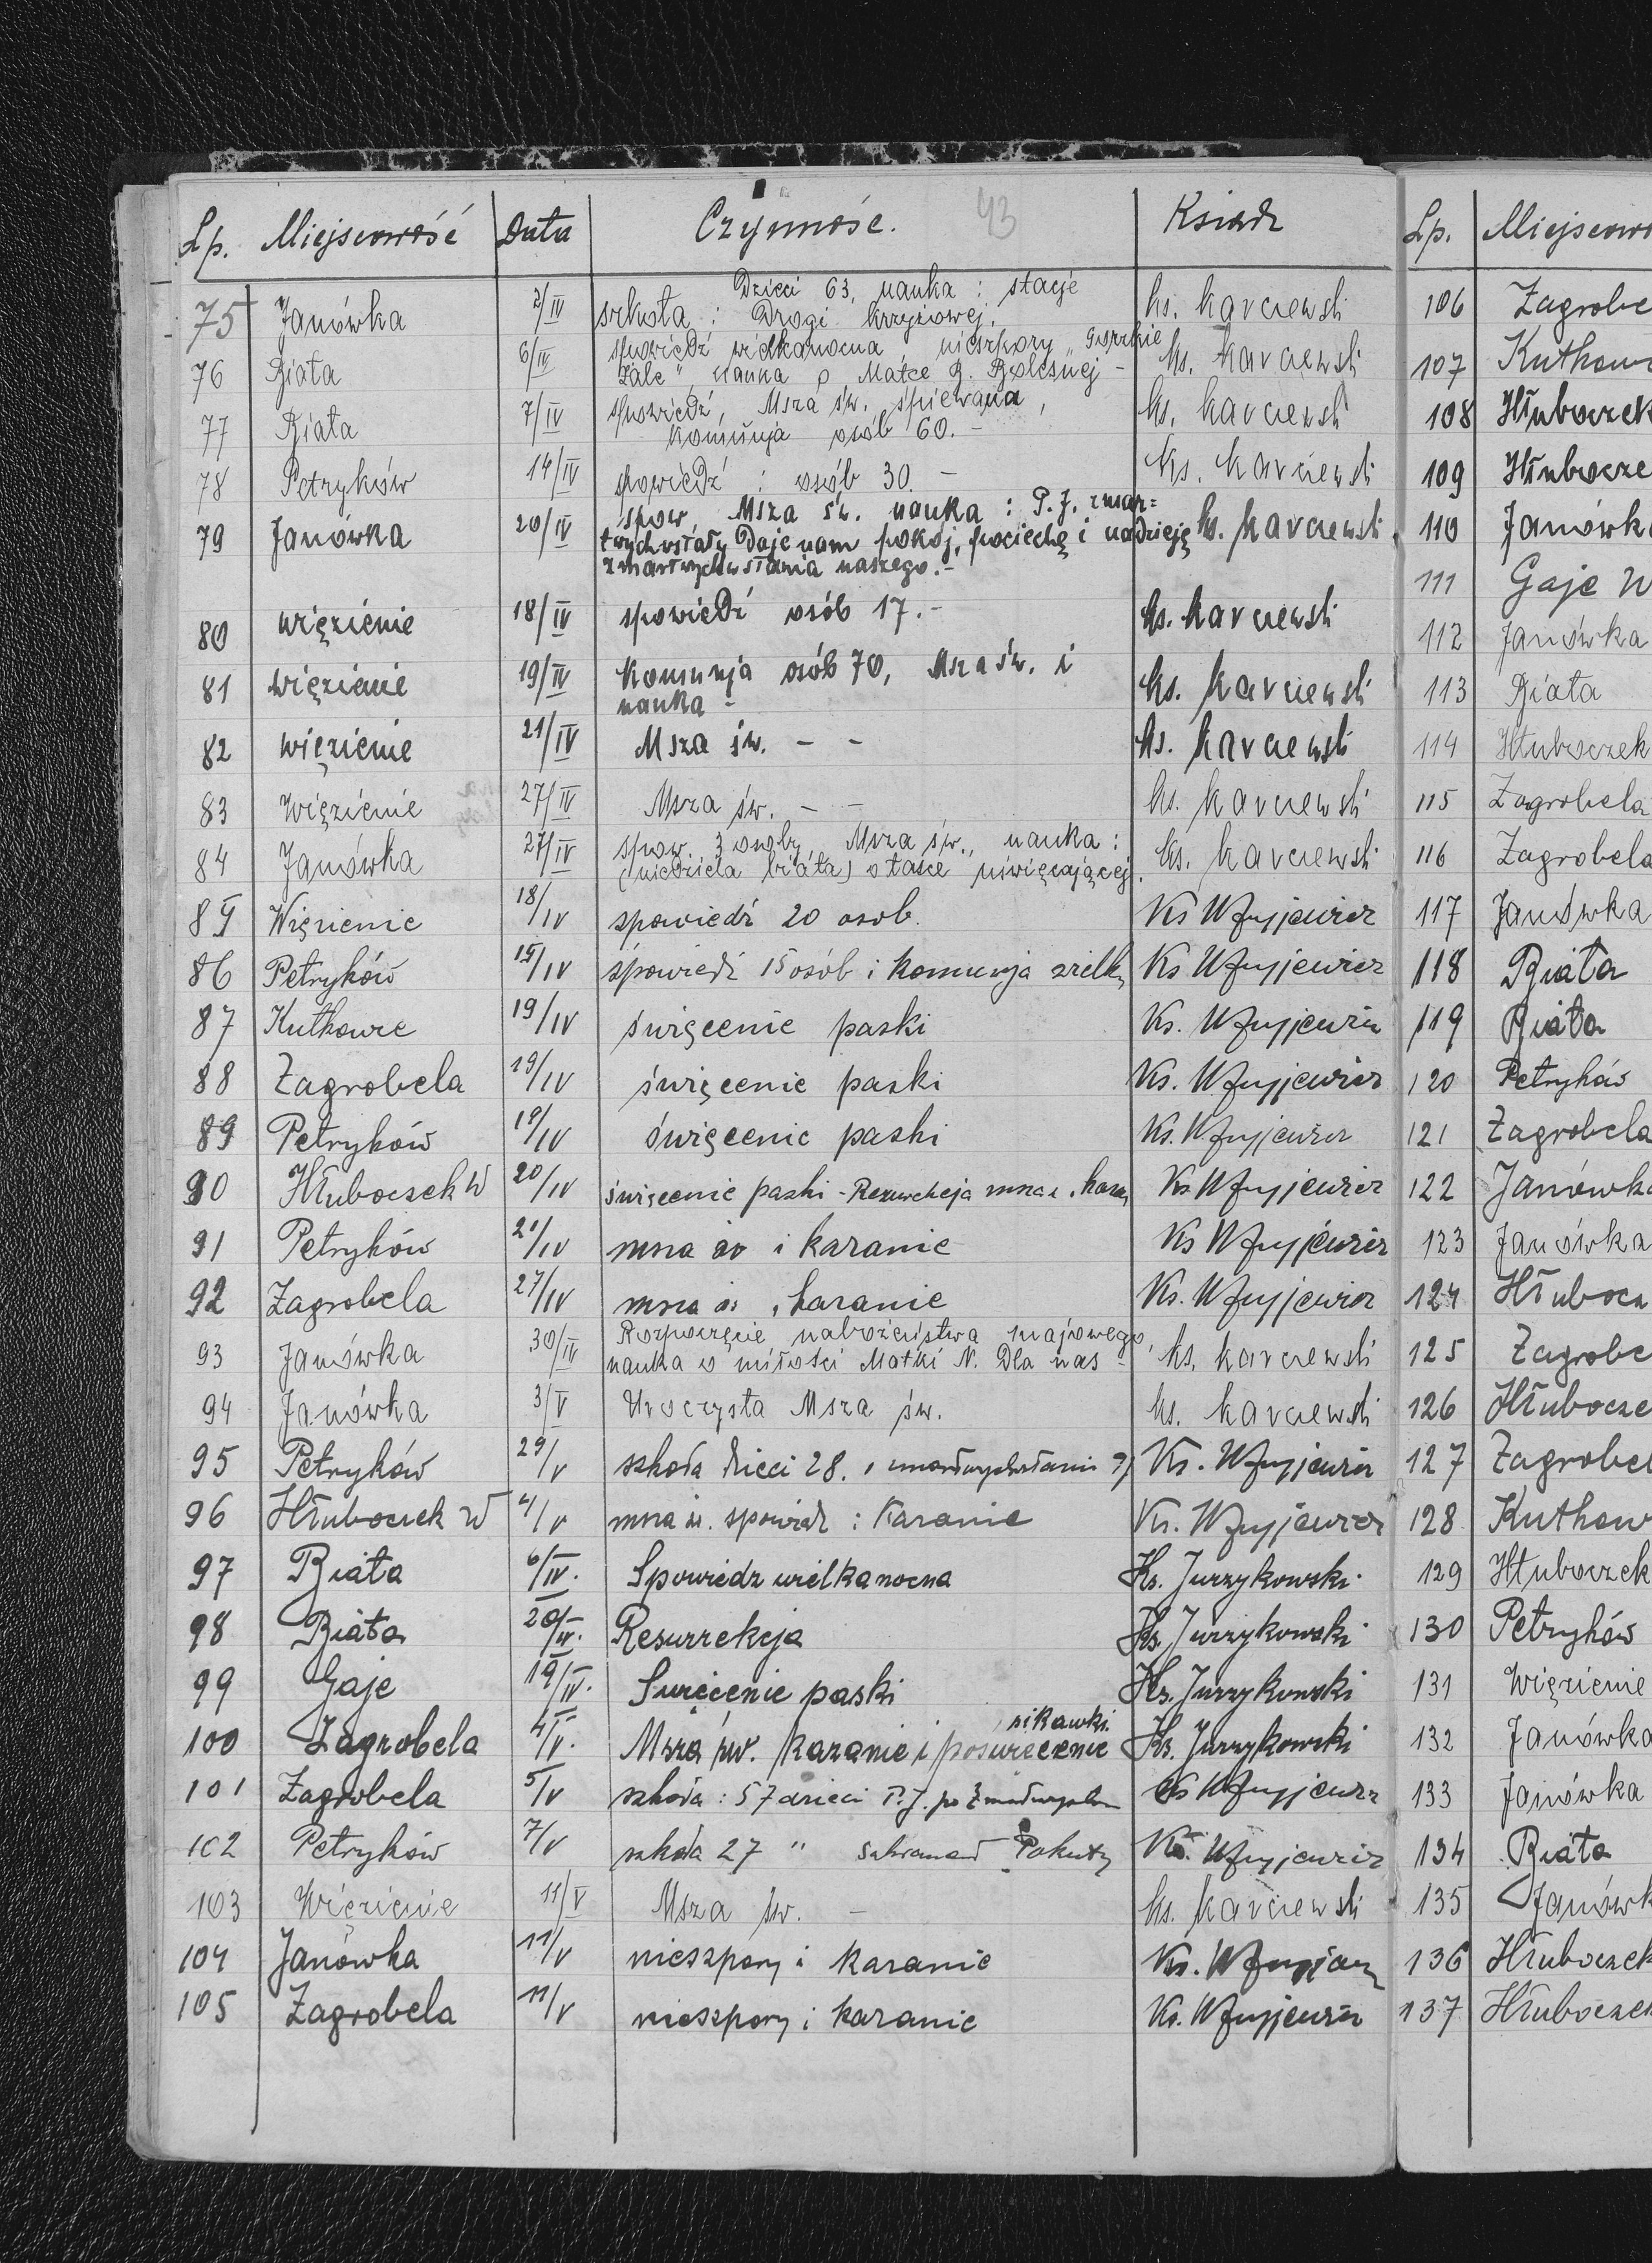 43
Lp. Miejscowość Data Czynność. Ksiądz
75 Janówka 2/IV Dzieci 63, nauka : stacje
szkoła : Drogi krzyżowej. ks. Karczewski
76 Biała 6/IV spowiedź wielkanocna nieszpory „Gorzkie
Żale", nauka o Matce B. Bolesnej - ks. Karczewski
77 Biała 7/IV spowiedź, Msza św. śpiewana,
Komunja osób 60. - ks. Karczewski
78 Petryków 14/IV spowiedź : osób 30. - ks. Karczewski
79 Janówka 20/IV spow. Msza św. nauka : P. J. zmar=
twychwstały Daje nam pokój, pociechę i nadzieję ks. Karczewski
zmartwychwstania naszego. -
80 więzienie 18/IV spowiedź osób 17. - ks. Karczewski
81 więzienie 19/IV Komunja osób 70, Msza św. i
nauka - ks. Karczewski
82 więzienie 21/IV Msza św. - - ks. Karczewski
83 Więzienie 27/IV Msza św. - - ks. Karczewski
84 Janówka 27/IV spow. 3 osoby, Msza św., nauka :
(niedziela biała) o łasce uświęcającej. ks. Karczewski
85 Więzienie 18/IV spowiedź 20 osob. Ks
86 Petryków 15/IV spowiedź 15 osób i Komunja Ks
87 Kutkowce 19/IV święcenie paski Ks.
88 Zagrobela 19/IV święcenie paski Ks.
89 Petryków 19/IV święcenie paski Ks.
90 Hłuboczek W 20/IV święcenie paski - Rezurekcja msza i kazan Ks
91 Petryków 21/IV msza św i kazanie Ks
92 Zagrobela 27/IV msza św i kazanie Ks.
93 Janówka 30/IV Rozpoczęcie nabożeństwa majowego,
nauka o miłości Matki N. Dla nas - ks. Karczewski
94 Janówka 3/V Uroczysta Msza św. ks. Karczewski
95 Petryków 29/V szkoła dzieci 28. o zmartwychwstaniu PJ Ks.
96 Hłuboczek W 4/V msza św. spowiedź i Kazanie Ks.
97 Biała 6/IV. Spowiedz wielkanocna Ks. Jurzykowski
98 Biała 20/IV. Resurrekcja Ks. Jurzykowski
99 Gaje 19/IV. Swięcenie paski Ks. Jurzykowski
100 Zagrobela 4/V. Msza św. kazanie i poświęcenie sikawki. Ks. Jurzykowski
101 Zagrobela 5/V szkoła : 57 dzieci P. J. po Zmartwychw Ks
102 Petryków 7/V szkoła 27 " Sakrament Pokuty Ks.
103 Więzienie 11/V Msza św. - ks. Karczewski
104 Janówka 11/V nieszpory i kazanie Ks.
105 Zagrobela 11/V nieszpory i kazanie Ks.
Lp. Miejscow
106 Zagrobe
107 Kutkow
108 Hłuboczek
109 Hłubocze
110 Janówka
111 Gaje W
112 Janówka
113 Biała
114 Hłuboczek
115 Zagrobela
116 Zagrobela
117 Janówka
118 Biała
119 Biała
120 Petryków
121 Zagrobela
122 Janówka
123 Janówka
124 Hłubocz
125 Zagrobe
126 Hłubocze
127 Zagrobel
128 Kutkow
129 Hłuboczek
130 Petryków
131 Więzienie
132 Janówka
133 Janówka
134 Biała
135 Janówk
136 Hłuboczek
137 Hłuboczek